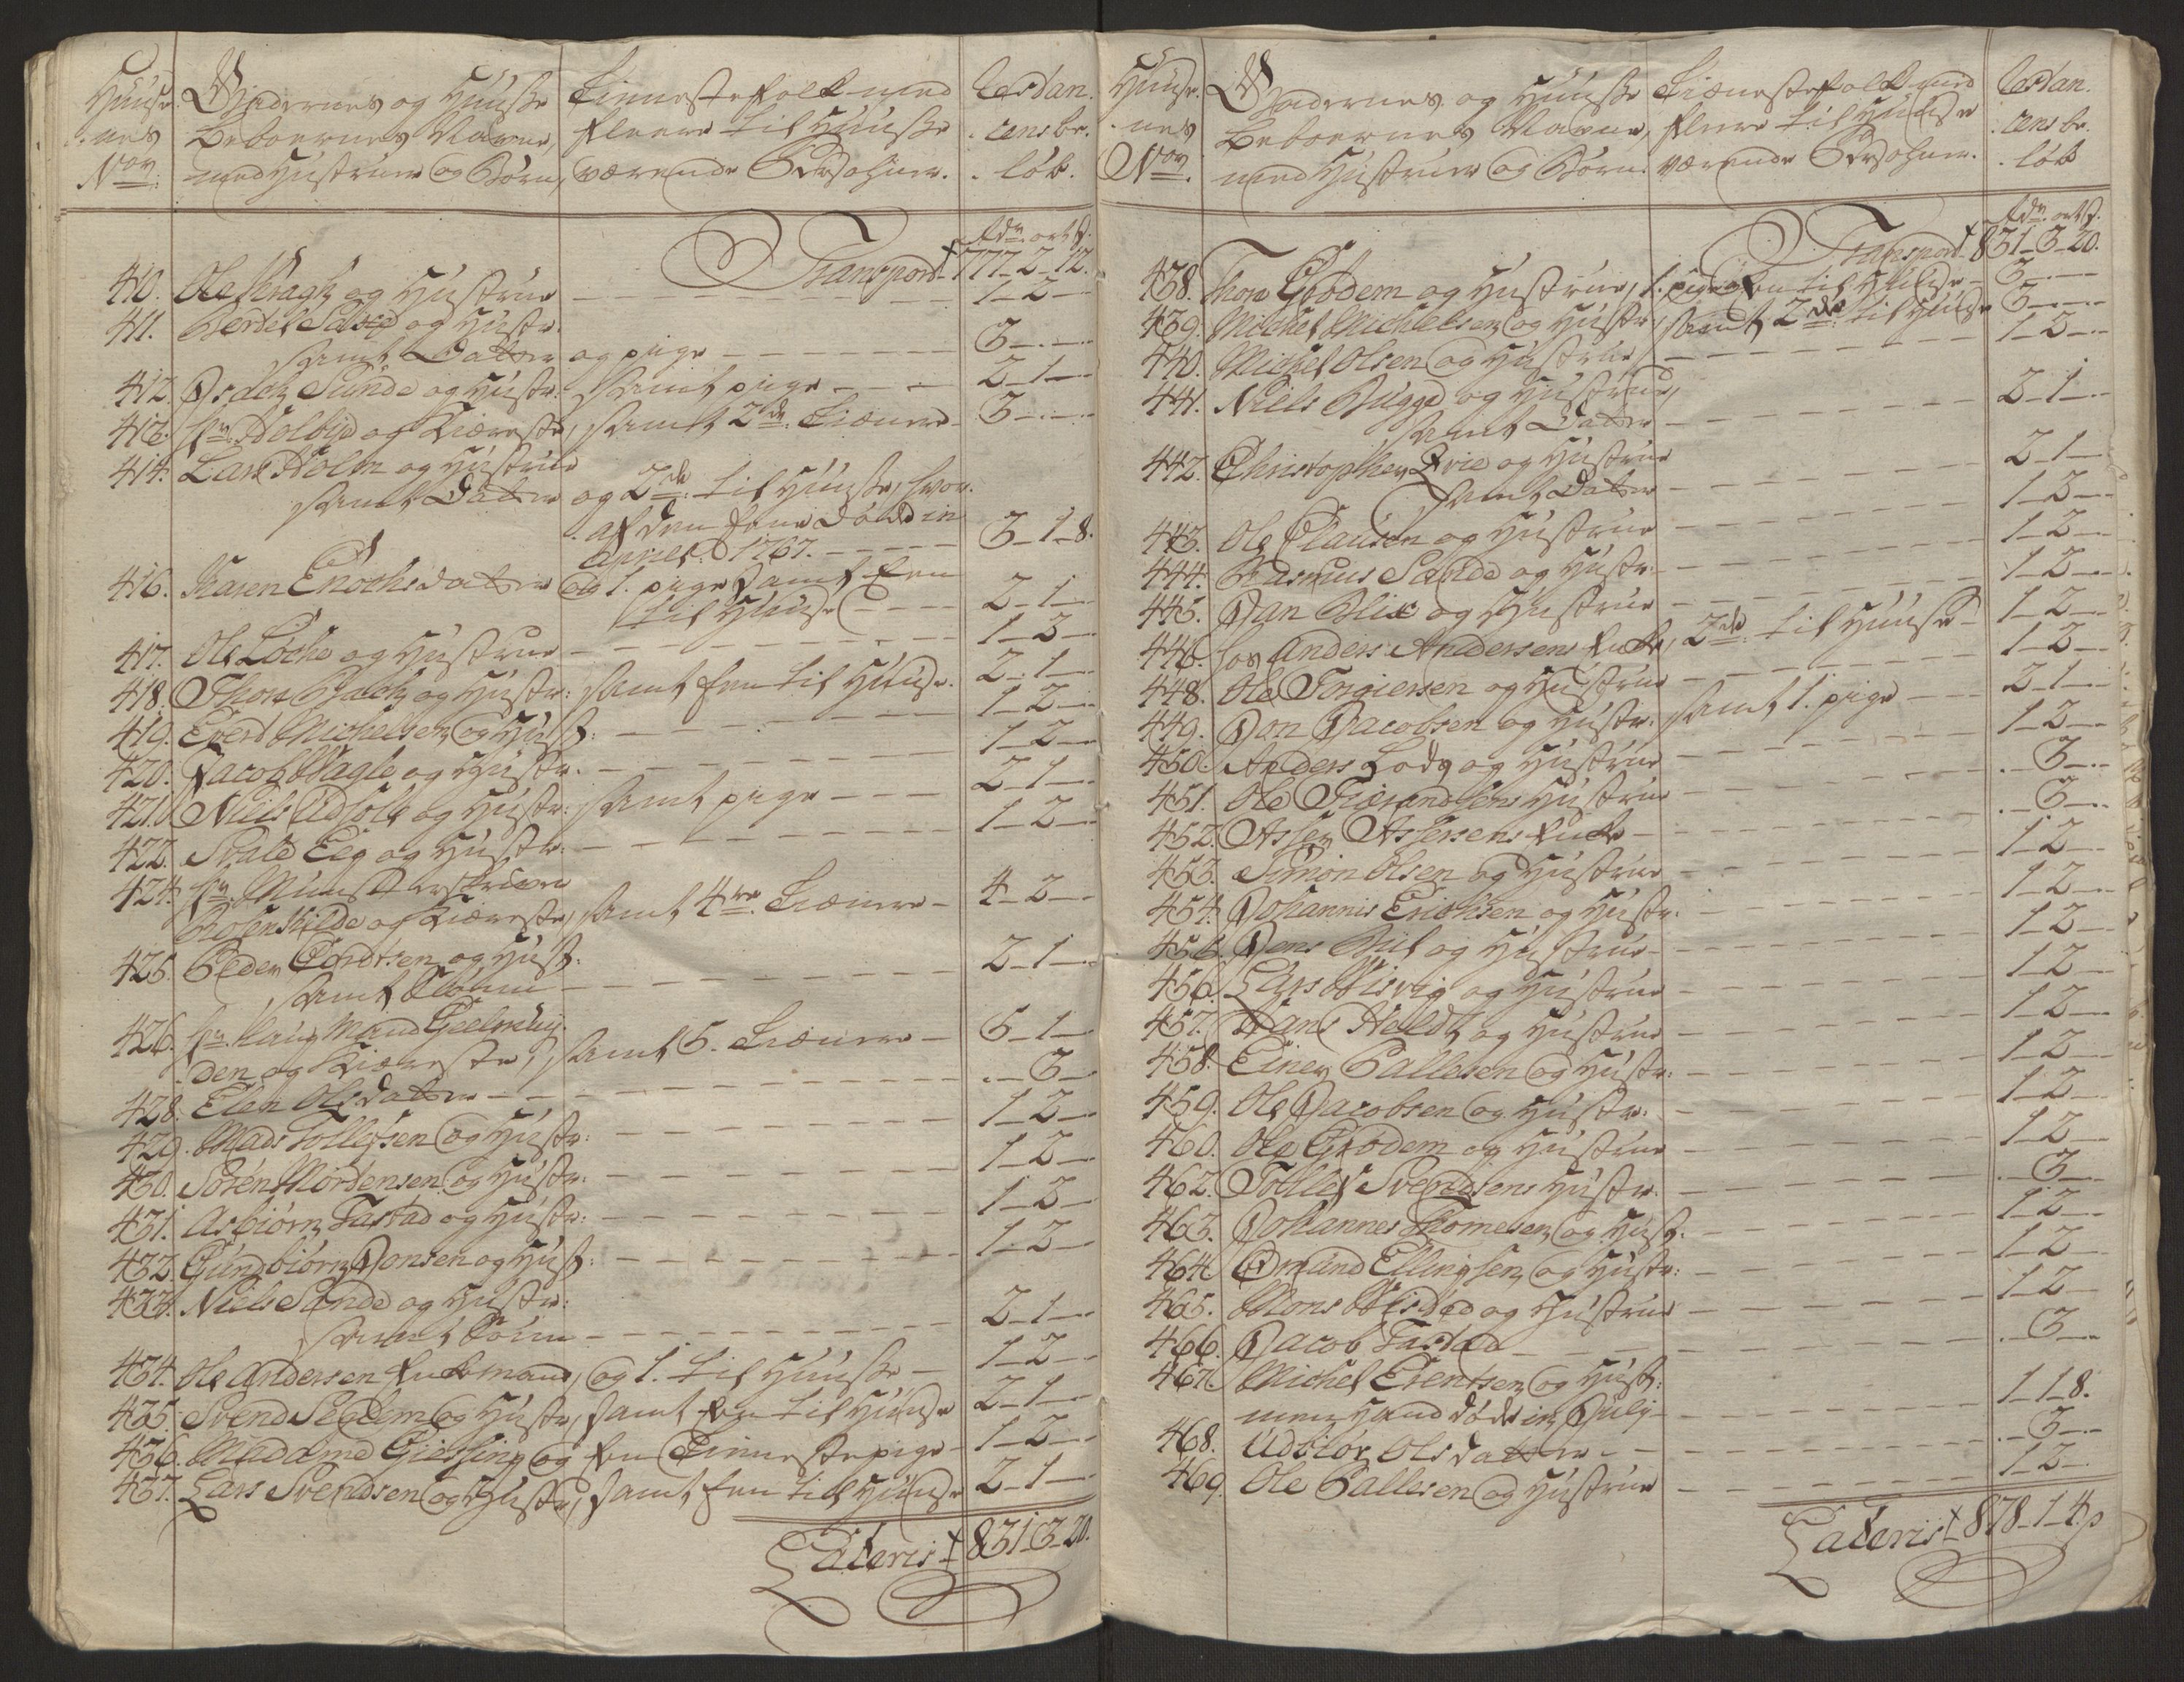 Huuse
nes
No:
Gaardernes og Huusse
Beboernes Navne,
med Hustruer og Børn,
Tienneste folk med
fleere til Huusse
værende Persohner.
bestan.
dens be.
løb.
Rdr. ort s.
Transport 777-2-12.
410. Ole Kragh og Hustrue 1-2-
411. Berdel og Hustr:
samt Datter og pige 3-
412. Isach Sunde og Hustr: samt pige 2-1-
413. Hr. Holbye og Kiæreste, samt 2de Tiænere 3-
414. Lars Holm og Hustrue
samt Datter og 2de til Huusse, hvor
af den eene døde in
April: 1767. 3-1-8.
416. Karen Enochsdatter og 1. pige samt een
til Huuse 2-1-
417. Ole Loche og Hustrue 1-2-
418. Thore Bach og Hustr: samt een til Huuse. 2-1-
419. Everd Michelsen og Hust: 1-2-
420. Jacob Wagle og Hustr: 1-2-
421. Niels Udsolt og Hustr: samt pige 2-1-
422. Svale Eeg og Hustr: 1-2-
424. Hr. Munsterskriver
Rosenkilde og Kiæreste, samt 4re Tiænere 4-2-
425. Peder Cordtsen og Hust:
samt Sønn 2-1-
426. Hr. Laug Mand Geelmuy
den og Kiæreste, samt 5. Tiænere 5-1-
428. Elen Olsdatter 3-
429. Mads Tollefsen og Hustr: 1-2-
430. Soren Mordensen og Hustr: 1-2-
431. Asbiørn Tastad og Hustr: 1-2-
432. Gundbiørn Jonsen og Hust: 1-2-
433. Niels Sande og Hustr:
samt Sønn 2-1-
434. Ole Andersen Enkemand, og 1. til Huusse 1-2-
435. Svend Segdem og Hustr, samt een til Huuse 2-1-
436. Madame Giessing og een Tienneste pige 1-2-
437. Lars Svendsen og Hustr, samt een til Huuse 2-1-
Lateris 831-3-20.
Huuse
nes
No.
Gaardernes og Huusse
Beboernes Navne,
med Hustruer og Børn.
Tiæneste folk med
fleere til Huuse
værende Persohner.
bestan.
dens be.
løb
Rdr. ort s.
Transport 831-3-20.
438. Thore Grødem og Hustrue, 1. pige og en til Huuse 3-
439. Michel Michelsen og Hustr, samt 2de til Huuse 3-
440. Michel Olsen og Hustrue 1-2-
441. Niels Bugge og Hustrue,
samt Datter 2-1-
442. Christopher Qvie og Hustrue
samt Datter 2-1-
443. Ole Clausen og Hustrue 1-2-
444. Rasmus Sande og Hustr: 1-2-
445. Jan Blix og Hustrue 1-2-
446. Hos Anders Andersens Enke, 2de til Huuse 1-2-
448. Ole Torgiersen og Hustrue 1-2-
449. Jon Jacobsen og Hustr: samt 1. pige 2-1-
450. Anders Lode og Hustrue 1-2-
451. Ole Tierandsens Hustrue 3-
452. Asser Assersens Enke 3-
453. Simon Olsen og Hustrue 1-2-
454. Johannis Erichsen og Hustr: 1-2-
455. Jens Bil og Hustrue 1-2-
456. Lars Wisvig og Hustrue 1-2-
457. Hans Heldt og Hustrue 1-2-
458. Einer Pallesen og Hustr: 1-2-
459. Ole Jacobsen og Hustr: 1-2-
460. Ole Grødem og Hustrue 1-2-
462. Tollef Svendsens Hustr. 3-
463. Johannes Thomesen og Hust. 1-2-
464. Omund Ellingsen og Hustr: 1-2-
465. Mons Wisted og Hustrue 1-2-
466. Jacob Tastad 3-
467. Michel Evensen og Hust:
men Hand døde in July 1-1-8.
468. Udbiør Olsdatter 3-
469. Ole Pallesen og Hustrue 1-2-
Lateris 878-1-4.